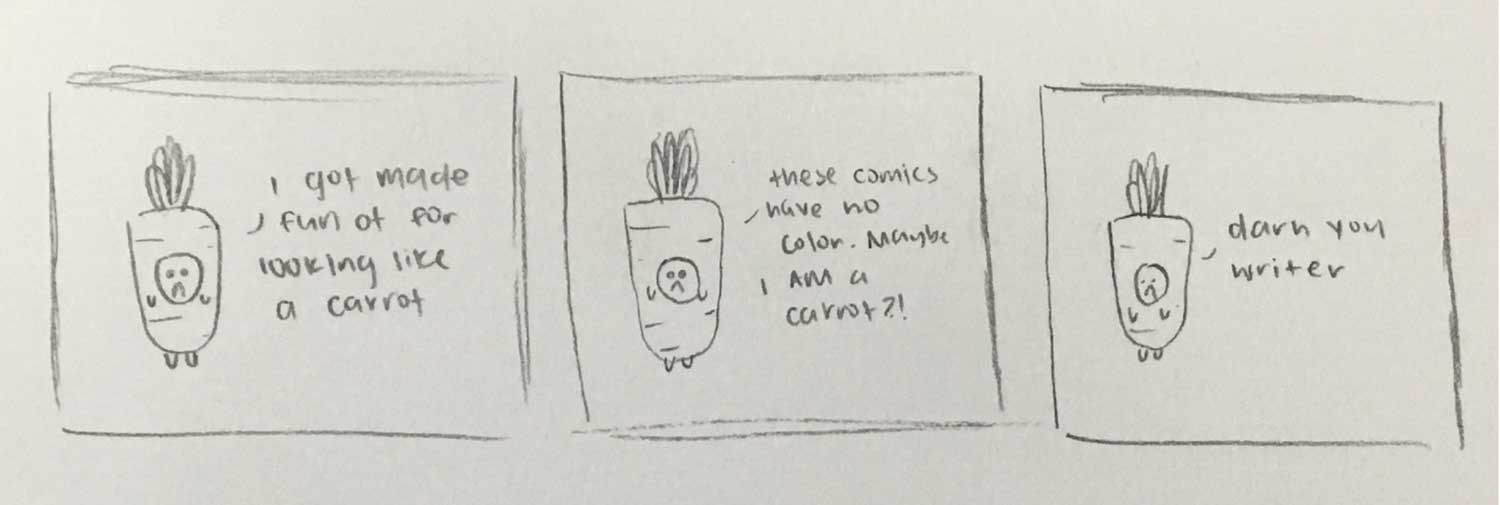 I got made
fun of for
looking like
a carrot
these comics
have no
color. Maybe
I AM a
carrot?!
darn you
writer